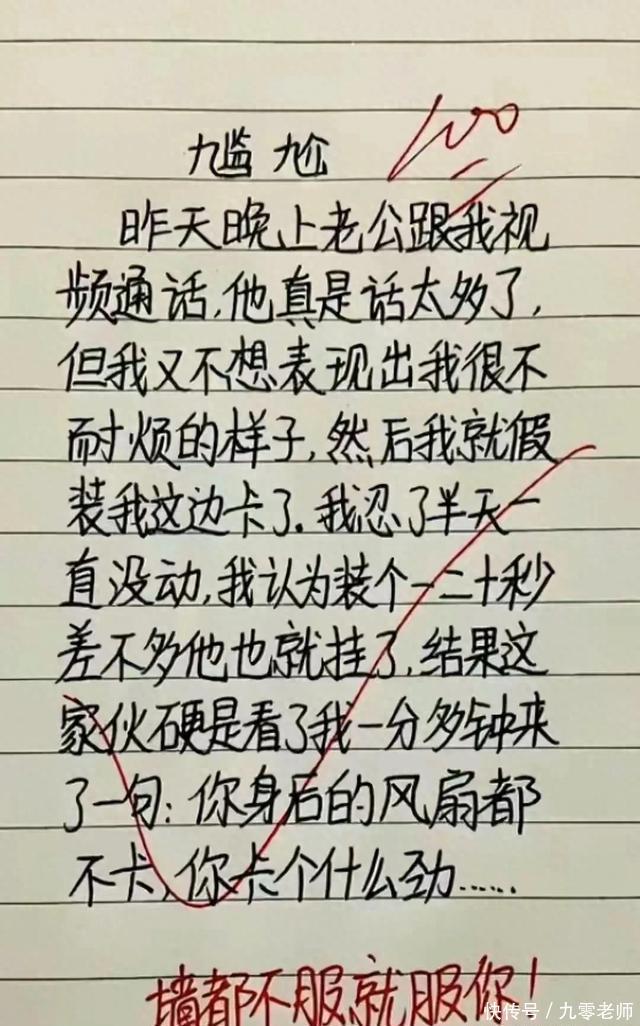 尴尬
100
昨天晚上老公跟我视
频通话,他真是话太多了,
但我又不想表现出我很不
耐烦的样子,然后我就假
装我这边卡了.我忍了半天一
直没动,我认为装个一二十秒
差不多他也就挂了,结果这
家伙硬是看了我一分多钟来
了一句:你身后的风扇都
不卡,你卡个什么劲……
墙都不服就服你!
快传号/九零老师